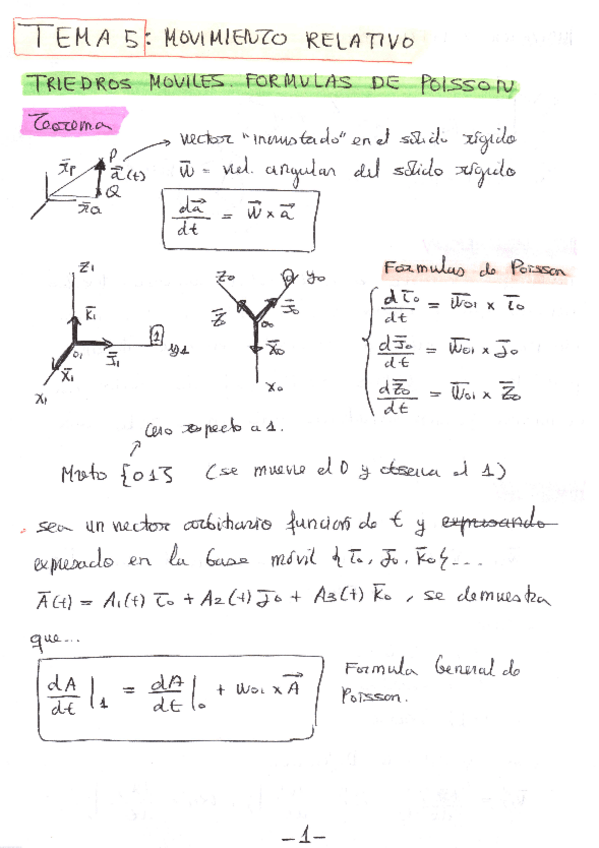 TEMA 5: MOVIMIENTO RELATIVO
TRIEDROS MOVILES. FORMULAS DE POISSON
Teorema
vector "incrustado" en el sólido rígido
P
r̄p
ā(t)
Q
r̄Q
w̄ = vel. angular del sólido rígido
da⃗/dt = w⃗ x a⃗
Formulas de Poisson
z1
k̄1
O1
j̄1
1
y1
ī1
x1
z0
0
y0
j̄0
O0
x0
dī0/dt = w̄01 x ī0
dj̄0/dt = w̄01 x j̄0
dk̄0/dt = w̄01 x k̄0
Cero respecto a 1.
Mvto {01} (se mueve el 0 y observa el 1)
sea un vector arbitrario función de t y expresando
expresado en la base móvil {ī0, j̄0, k̄0}...
Ā(t) = A1(t) ī0 + A2(t) j̄0 + A3(t) k̄0, se demuestra
que...
dA/dt |1 = dA/dt |0 + w01 x A⃗
Formula General de
Poisson.
-1-